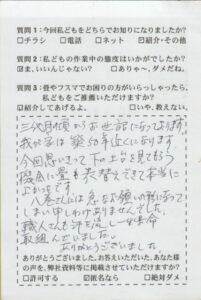 質問1:今回私どもをどちらでお知りになりましたか?
□チラシ □電話 □ネット ☑紹介・その他
質問2:私どもの作業中の態度はいかがでしたか?
☑ま、いいんじゃない? □ありゃ〜、ダメだね。
質問3:畳やフスマでお困りの方がいらっしゃったら、
私どもをご推薦いただけますか?
☑紹介してあげるよ。 □いや、教えない。
三代前頃からお世話になっております。
我が家は築60年近くになります
今回思いきって下のよごれを見てもらう
機会に畳も表替えできて本当に
よかったです
急なお願いになって
しまい申しわけありませんでした
職人さんも汗を流し一生懸命
取組んでいました。
ありがとうございました
ありがとうございました。お答えいただいた、あなた様
の声を、弊社資料等に掲載させていただけますか?
□許可する ☑匿名なら □絶対ダメ